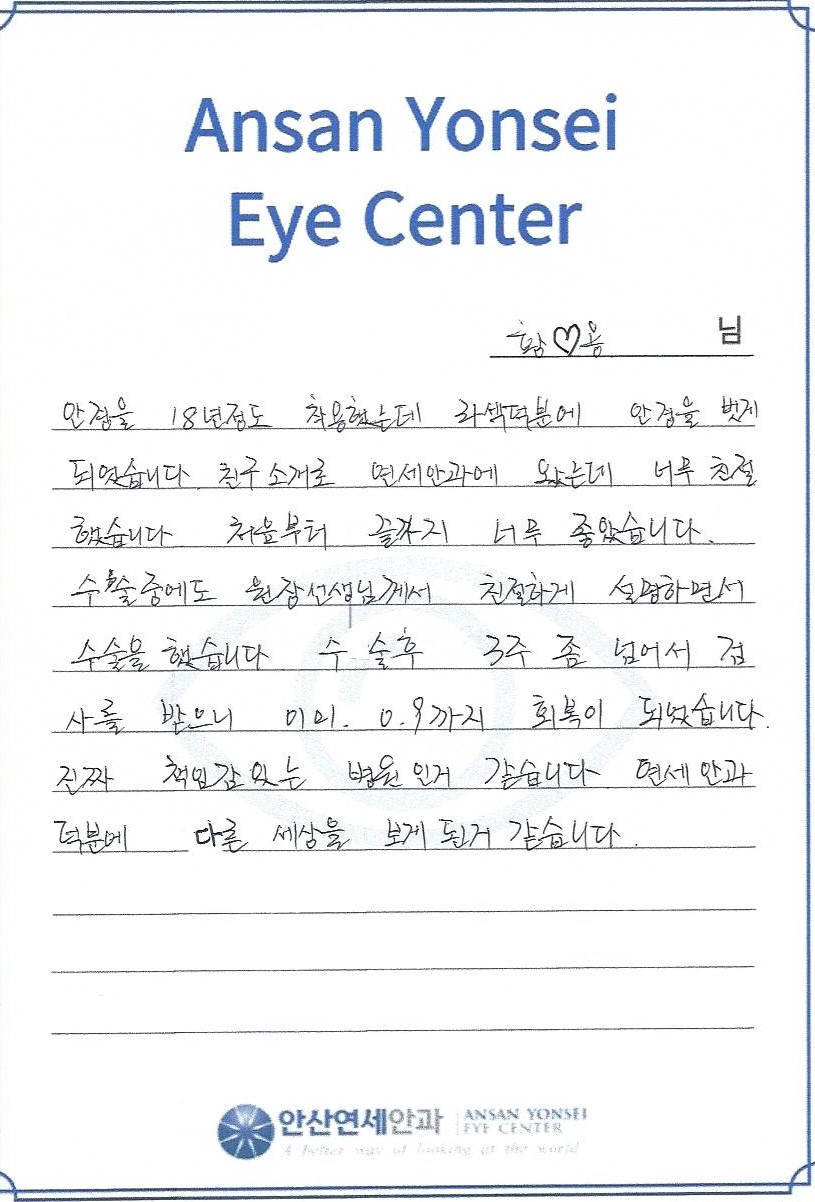 Ansan Yonsei
Eye Center
황♡용 님
안경을 18년정도 착용했는데 라색덕분에 안경을 벗게
되었습니다. 친구 소개로 연세안과에 왔는데 너무 친절
했습니다 처음부터 끝까지 너무 좋았습니다.
수술중에도 원장선생님께서 친절하게 설명하면서
수술을 했습니다 수술후 3주 좀 넘어서 검
사를 받으니 이미. 0.9까지 회복이 되었습니다.
진짜 책임감 있는 병원인거 같습니다 연세안과
덕분에 다른 세상을 보게 된거 같습니다.
안산연세안과 ANSAN YONSEI
EYE CENTER
A better way of looking at the world